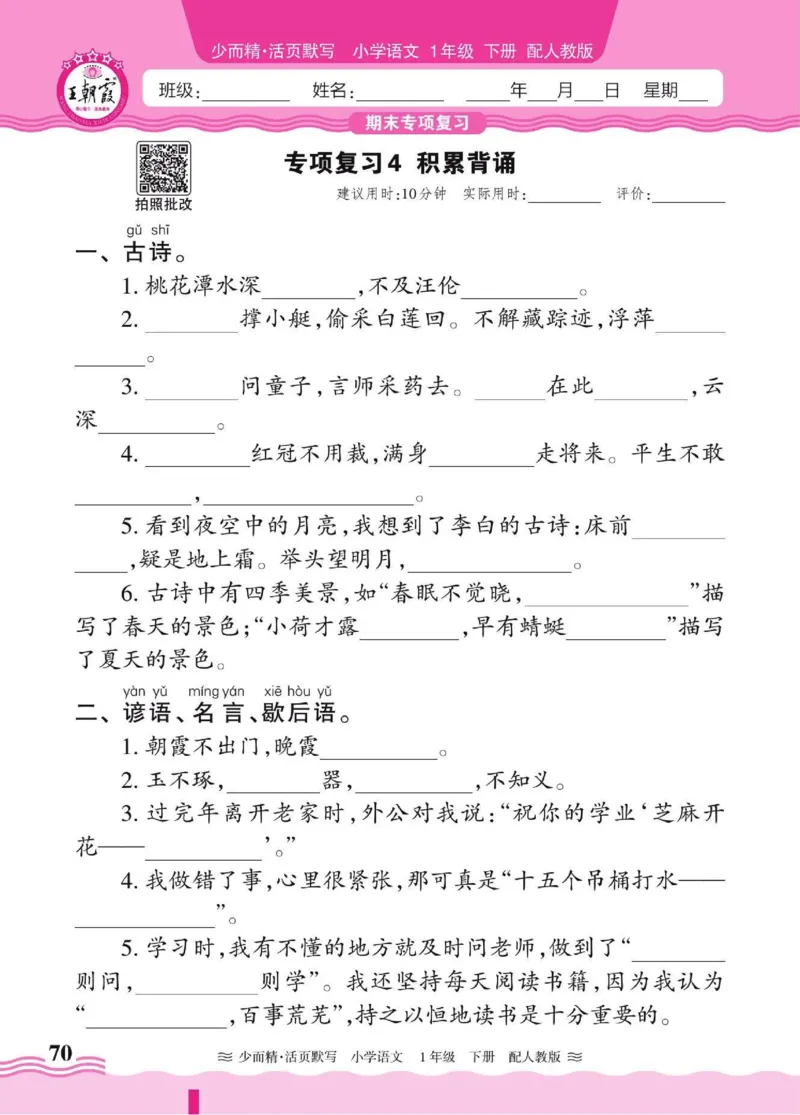 少而精·活页默写 小学语文 1年级 下册 配人教版
王朝霞
班级:__________ 姓名:__________ _____年___月___日 星期___
期末专项复习
专项复习4 积累背诵
拍照批改
建议用时:10分钟 实际用时:________ 评价:________
gǔ shī
一、古诗。
1. 桃花潭水深________,不及汪伦__________。
2. ________撑小艇,偷采白莲回。不解藏踪迹,浮萍______
______。
3. ________问童子,言师采药去。______在此________,云
深__________。
4. _________红冠不用裁,满身_________走将来。平生不敢
__________,__________________。
5. 看到夜空中的月亮,我想到了李白的古诗:床前________
____,疑是地上霜。举头望明月,______________。
6. 古诗中有四季美景,如“春眠不觉晓,______________”描
写了春天的景色;“小荷才露________,早有蜻蜓________”描写
了夏天的景色。
yàn yǔ míng yán xiē hòu yǔ
二、谚语、名言、歇后语。
1. 朝霞不出门,晚霞__________。
2. 玉不琢,________器,__________,不知义。
3. 过完年离开老家时,外公对我说:“祝你的学业‘芝麻开
花——__________’。”
4. 我做错了事,心里很紧张,那可真是“十五个吊桶打水——
____________”。
5. 学习时,我有不懂的地方就及时问老师,做到了“________
则问,__________则学”。我还坚持每天阅读书籍,因为我认为
“____________,百事荒芜”,持之以恒地读书是十分重要的。
70
少而精·活页默写 小学语文 1年级 下册 配人教版